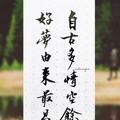 自古多情空餘
好夢由來最易